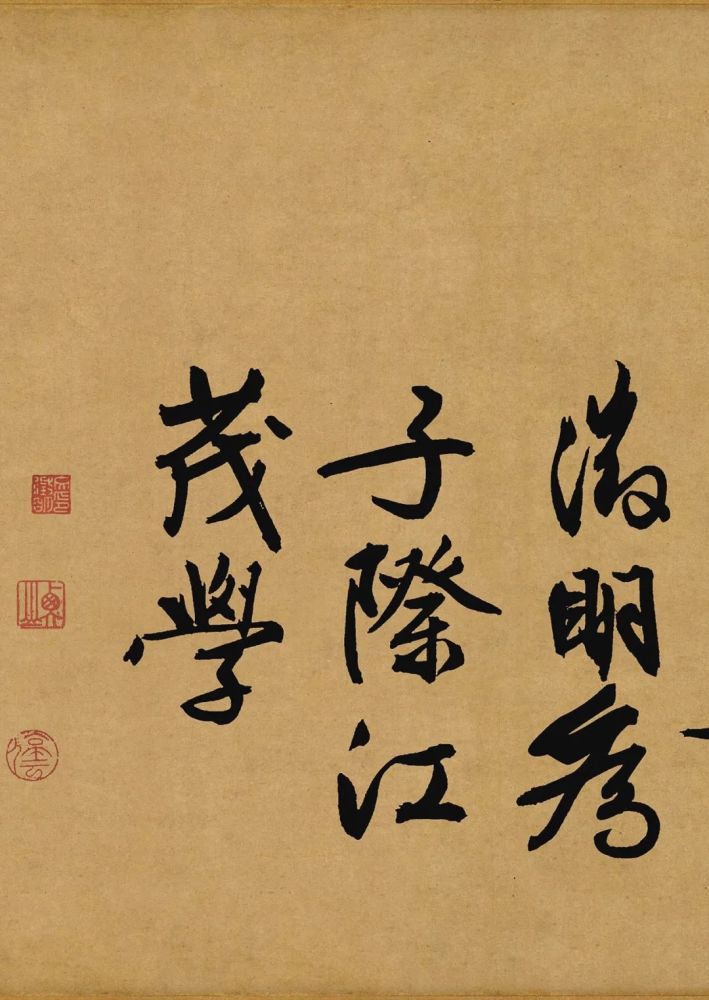 徵明為
子際江
茂學
停雲